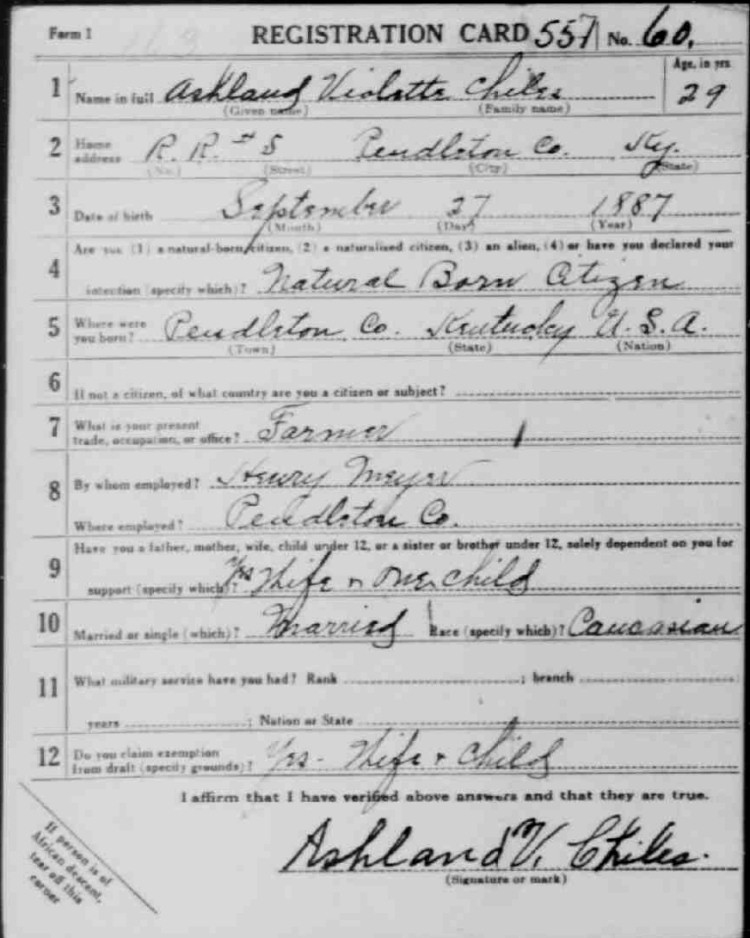 Form 1 REGISTRATION CARD 557 No. 60.
1 Name in full Ashland Violette Chiles Age, in yrs 29
(Given name) (Family name)
2 Home address R. R. # 5 Pendleton Co. Ky.
(No.) (Street) (City) (State)
3 Date of birth September 27 1887
(Month) (Day) (Year)
4 Are you (1) a natural-born citizen, (2) a naturalized citizen, (3) an alien, (4) or have you declared your
intention (specify which)? Natural Born Citizen
5 Where were you born? Pendleton Co. Kentucky U. S. A.
(Town) (State) (Nation)
6 If not a citizen, of what country are you a citizen or subject?
7 What is your present trade, occupation, or office? Farmer
8 By whom employed? Henry Meyer
Where employed? Pendleton Co.
9 Have you a father, mother, wife, child under 12, or a sister or brother under 12, solely dependent on you for
support (specify which)? Yes Wife & one child
10 Married or single (which)? Married Race (specify which)? Caucasian
11 What military service have you had? Rank ; branch
years ; Nation or State
12 Do you claim exemption from draft (specify grounds)? Yes - Wife + Child
I affirm that I have verified above answers and that they are true.
Ashland V. Chiles.
(Signature or mark)
If person is of
African descent,
tear off this
corner